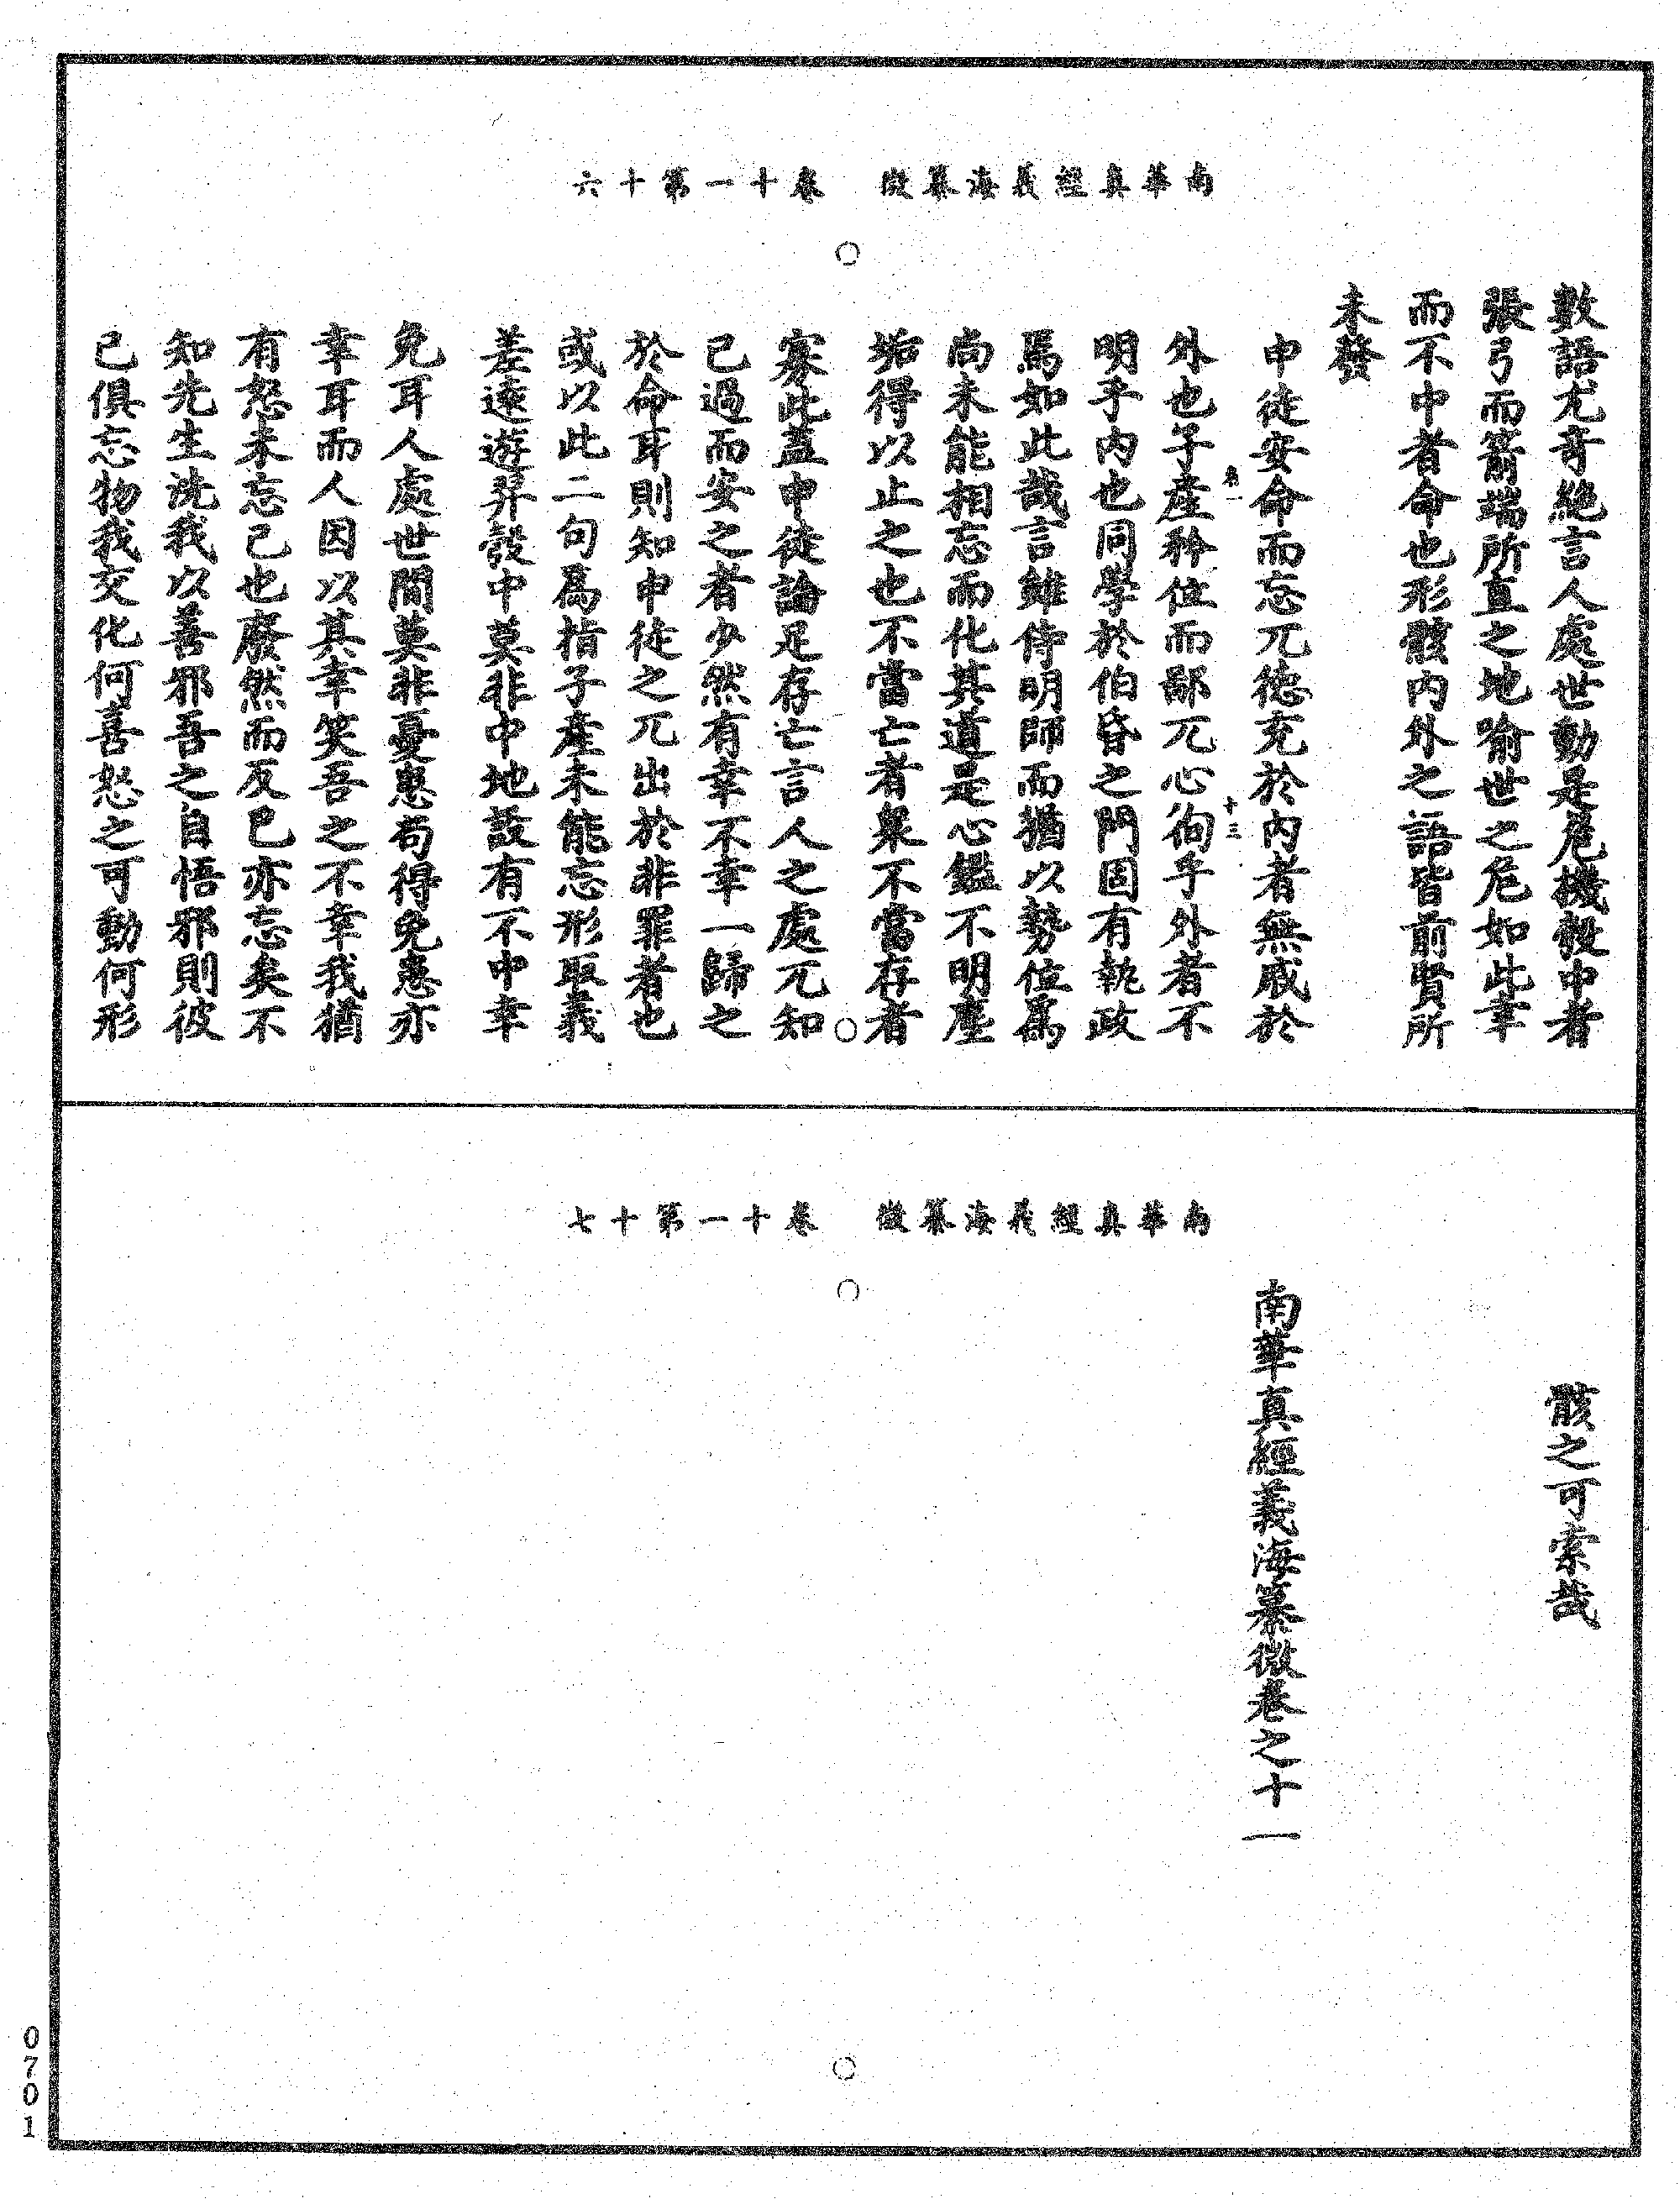 南華真經義海纂微　卷十一第十六
數語尤奇絕言人處世動是危機彀中者
張弓而箭端所直之地喻世之危如此幸
而不中者命也形骸內外之語皆前賢所
未發
申徒安命而忘兀德充於內者無慼於
外也子產矜位而鄙兀心徇乎外者不
明乎內也同學於伯昏之門固有執政
焉如此哉言雖侍明師而猶以勢位爲
尚未能相忘而化其道是心鑑不明塵
垢得以止之也不當亡者衆不當存者
寡此蓋申徒論足存亡言人之處兀知
己過而安之者少然有幸不幸一歸之
於命耳則知申徒之兀出於非罪者也
或以此二句爲指子產未能忘形取義
差遠遊羿彀中莫非中地設有不中幸
免耳人處世間莫非憂患苟得免患亦
幸耳而人因以其幸笑吾之不幸我猶
有怒未忘己也廢然而反己亦忘矣不
知先生洗我以善邪吾之自悟邪則彼
己俱忘物我交化何喜怒之可動何形
十三
南華真經義海纂微　卷十一第十七
骸之可索哉
南華真經義海纂微卷之十一
0701